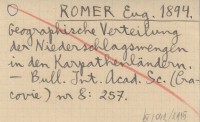 ROMER Eug. 1894.
Geographische Verteilung
der Niederschlagsmengen
in den Karpathenländern.
— Bull. Int. Acad. Sc. (Cra-
covie) nr 8: 257.